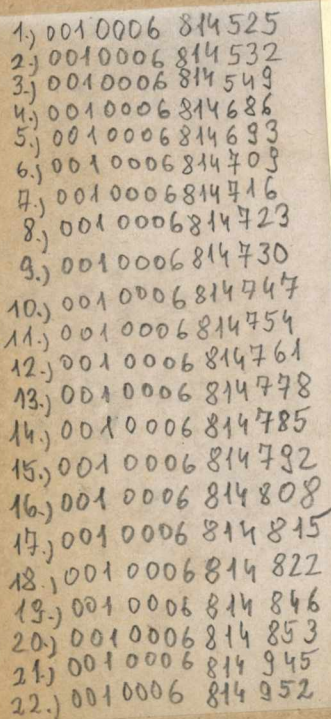 1.) 001 0006 814 525
2.) 001 0006 814 532
3.) 001 0006 814 549
4.) 001 0006 814 686
5.) 001 0006 814 693
6.) 001 0006 814 709
7.) 001 0006 814 716
8.) 001 0006 814 723
9.) 001 0006 814 730
10.) 001 0006 814 747
11.) 001 0006 814 754
12.) 001 0006 814 761
13.) 001 0006 814 778
14.) 001 0006 814 785
15.) 001 0006 814 792
16.) 001 0006 814 808
17.) 001 0006 814 815
18.) 001 0006 814 822
19.) 001 0006 814 846
20.) 001 0006 814 853
21.) 001 0006 814 945
22.) 001 0006 814 952